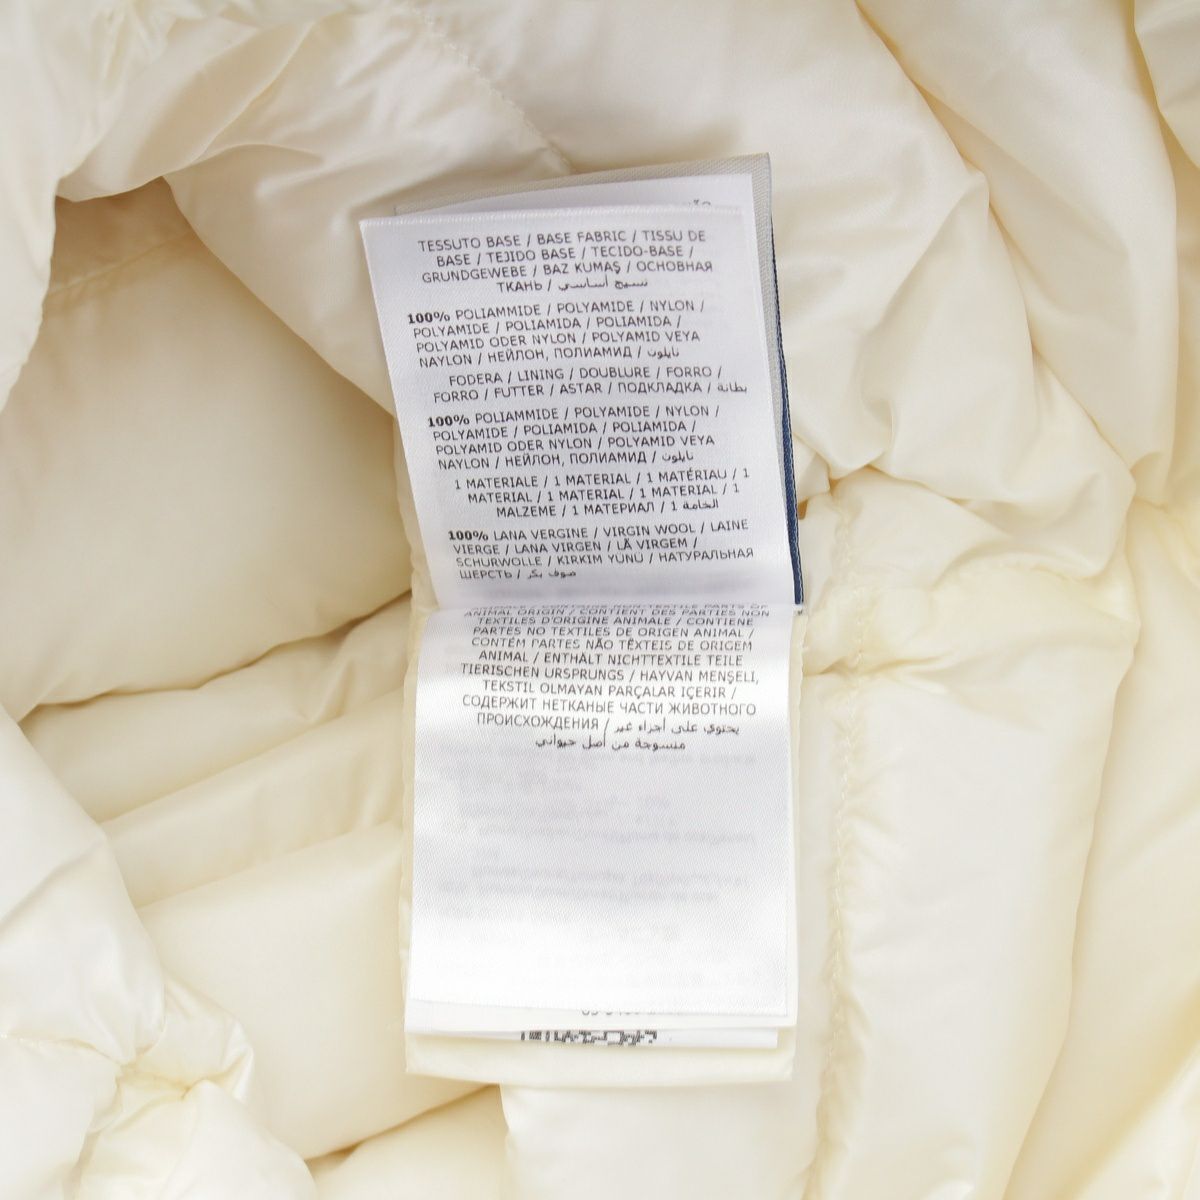 TESSUTO BASE / BASE FABRIC / TISSU DE
BASE / TEJIDO BASE / TECIDO-BASE /
GRUNDGEWEBE / BAZ KUMAŞ / ОСНОВНАЯ
ТКАНЬ / نسيج أساسي
100% POLIAMMIDE / POLYAMIDE / NYLON /
POLYAMIDE / POLIAMIDA / POLIAMIDA /
POLYAMID ODER NYLON / POLYAMID VEYA
NAYLON / НЕЙЛОН, ПОЛИАМИД / نايلون
FODERA / LINING / DOUBLURE / FORRO /
FORRO / FUTTER / ASTAR / ПОДКЛАДКА / بطانة
100% POLIAMMIDE / POLYAMIDE / NYLON /
POLYAMIDE / POLIAMIDA / POLIAMIDA /
POLYAMID ODER NYLON / POLYAMID VEYA
NAYLON / НЕЙЛОН, ПОЛИАМИД / نايلون
1 MATERIALE / 1 MATERIAL / 1 MATÉRIAU / 1
MATERIAL / 1 MATERIAL / 1 MATERIAL / 1
MALZEME / 1 МАТЕРИАЛ / 1 الخامة
100% LANA VERGINE / VIRGIN WOOL / LAINE
VIERGE / LANA VIRGEN / LÃ VIRGEM /
SCHURWOLLE / KIRKIM YÜNÜ / НАТУРАЛЬНАЯ
ШЕРСТЬ / صوف بكر
ANIMALE / CONTAINS NON-TEXTILE PARTS OF
ANIMAL ORIGIN / CONTIENT DES PARTIES NON
TEXTILES D'ORIGINE ANIMALE / CONTIENE
PARTES NO TEXTILES DE ORIGEN ANIMAL /
CONTÉM PARTES NÃO TÊXTEIS DE ORIGEM
ANIMAL / ENTHÄLT NICHTTEXTILE TEILE
TIERISCHEN URSPRUNGS / HAYVAN MENŞELİ,
TEKSTİL OLMAYAN PARÇALAR İÇERİR /
СОДЕРЖИТ НЕТКАНЫЕ ЧАСТИ ЖИВОТНОГО
ПРОИСХОЖДЕНИЯ / يحتوي على أجزاء غير
منسوجة من أصل حيواني